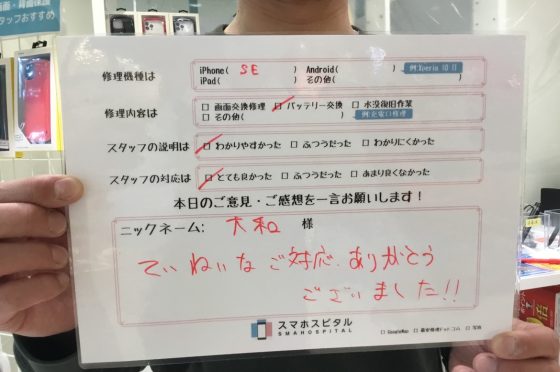 画面・背面保護
スタッフおすすめ
修理機種は
iPhone( SE ) Android( ) 例:Xperia 10 II
iPad( ) その他( )
修理内容は
□ 画面交換修理 ☑ バッテリー交換 □ 水没復旧作業
□ その他( ) 例:充電口修理
スタッフの説明は ☑ わかりやすかった □ ふつうだった □ わかりにくかった
スタッフの対応は ☑ とても良かった □ ふつうだった □ あまり良くなかった
本日のご意見・ご感想を一言お願いします!
ニックネーム: 大和 様
ていねいなご対応、ありがとう
ございました!!
スマホスピタル
SMAHOSPITAL
□ GoogleMap □ 最安修理ドットコム □ 宮崎